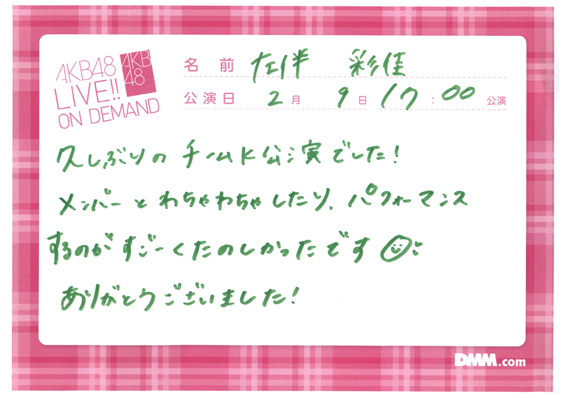 AKB48
LIVE!!
ON DEMAND
AKB
48
名前 左伴 彩佳
公演日 2月 9日 17:00 公演
久しぶりのチームK公演でした!
メンバーとわちゃわちゃしたり、パフォーマンス
するのがすごーくたのしかったです
ありがとうございました!
DMM.com